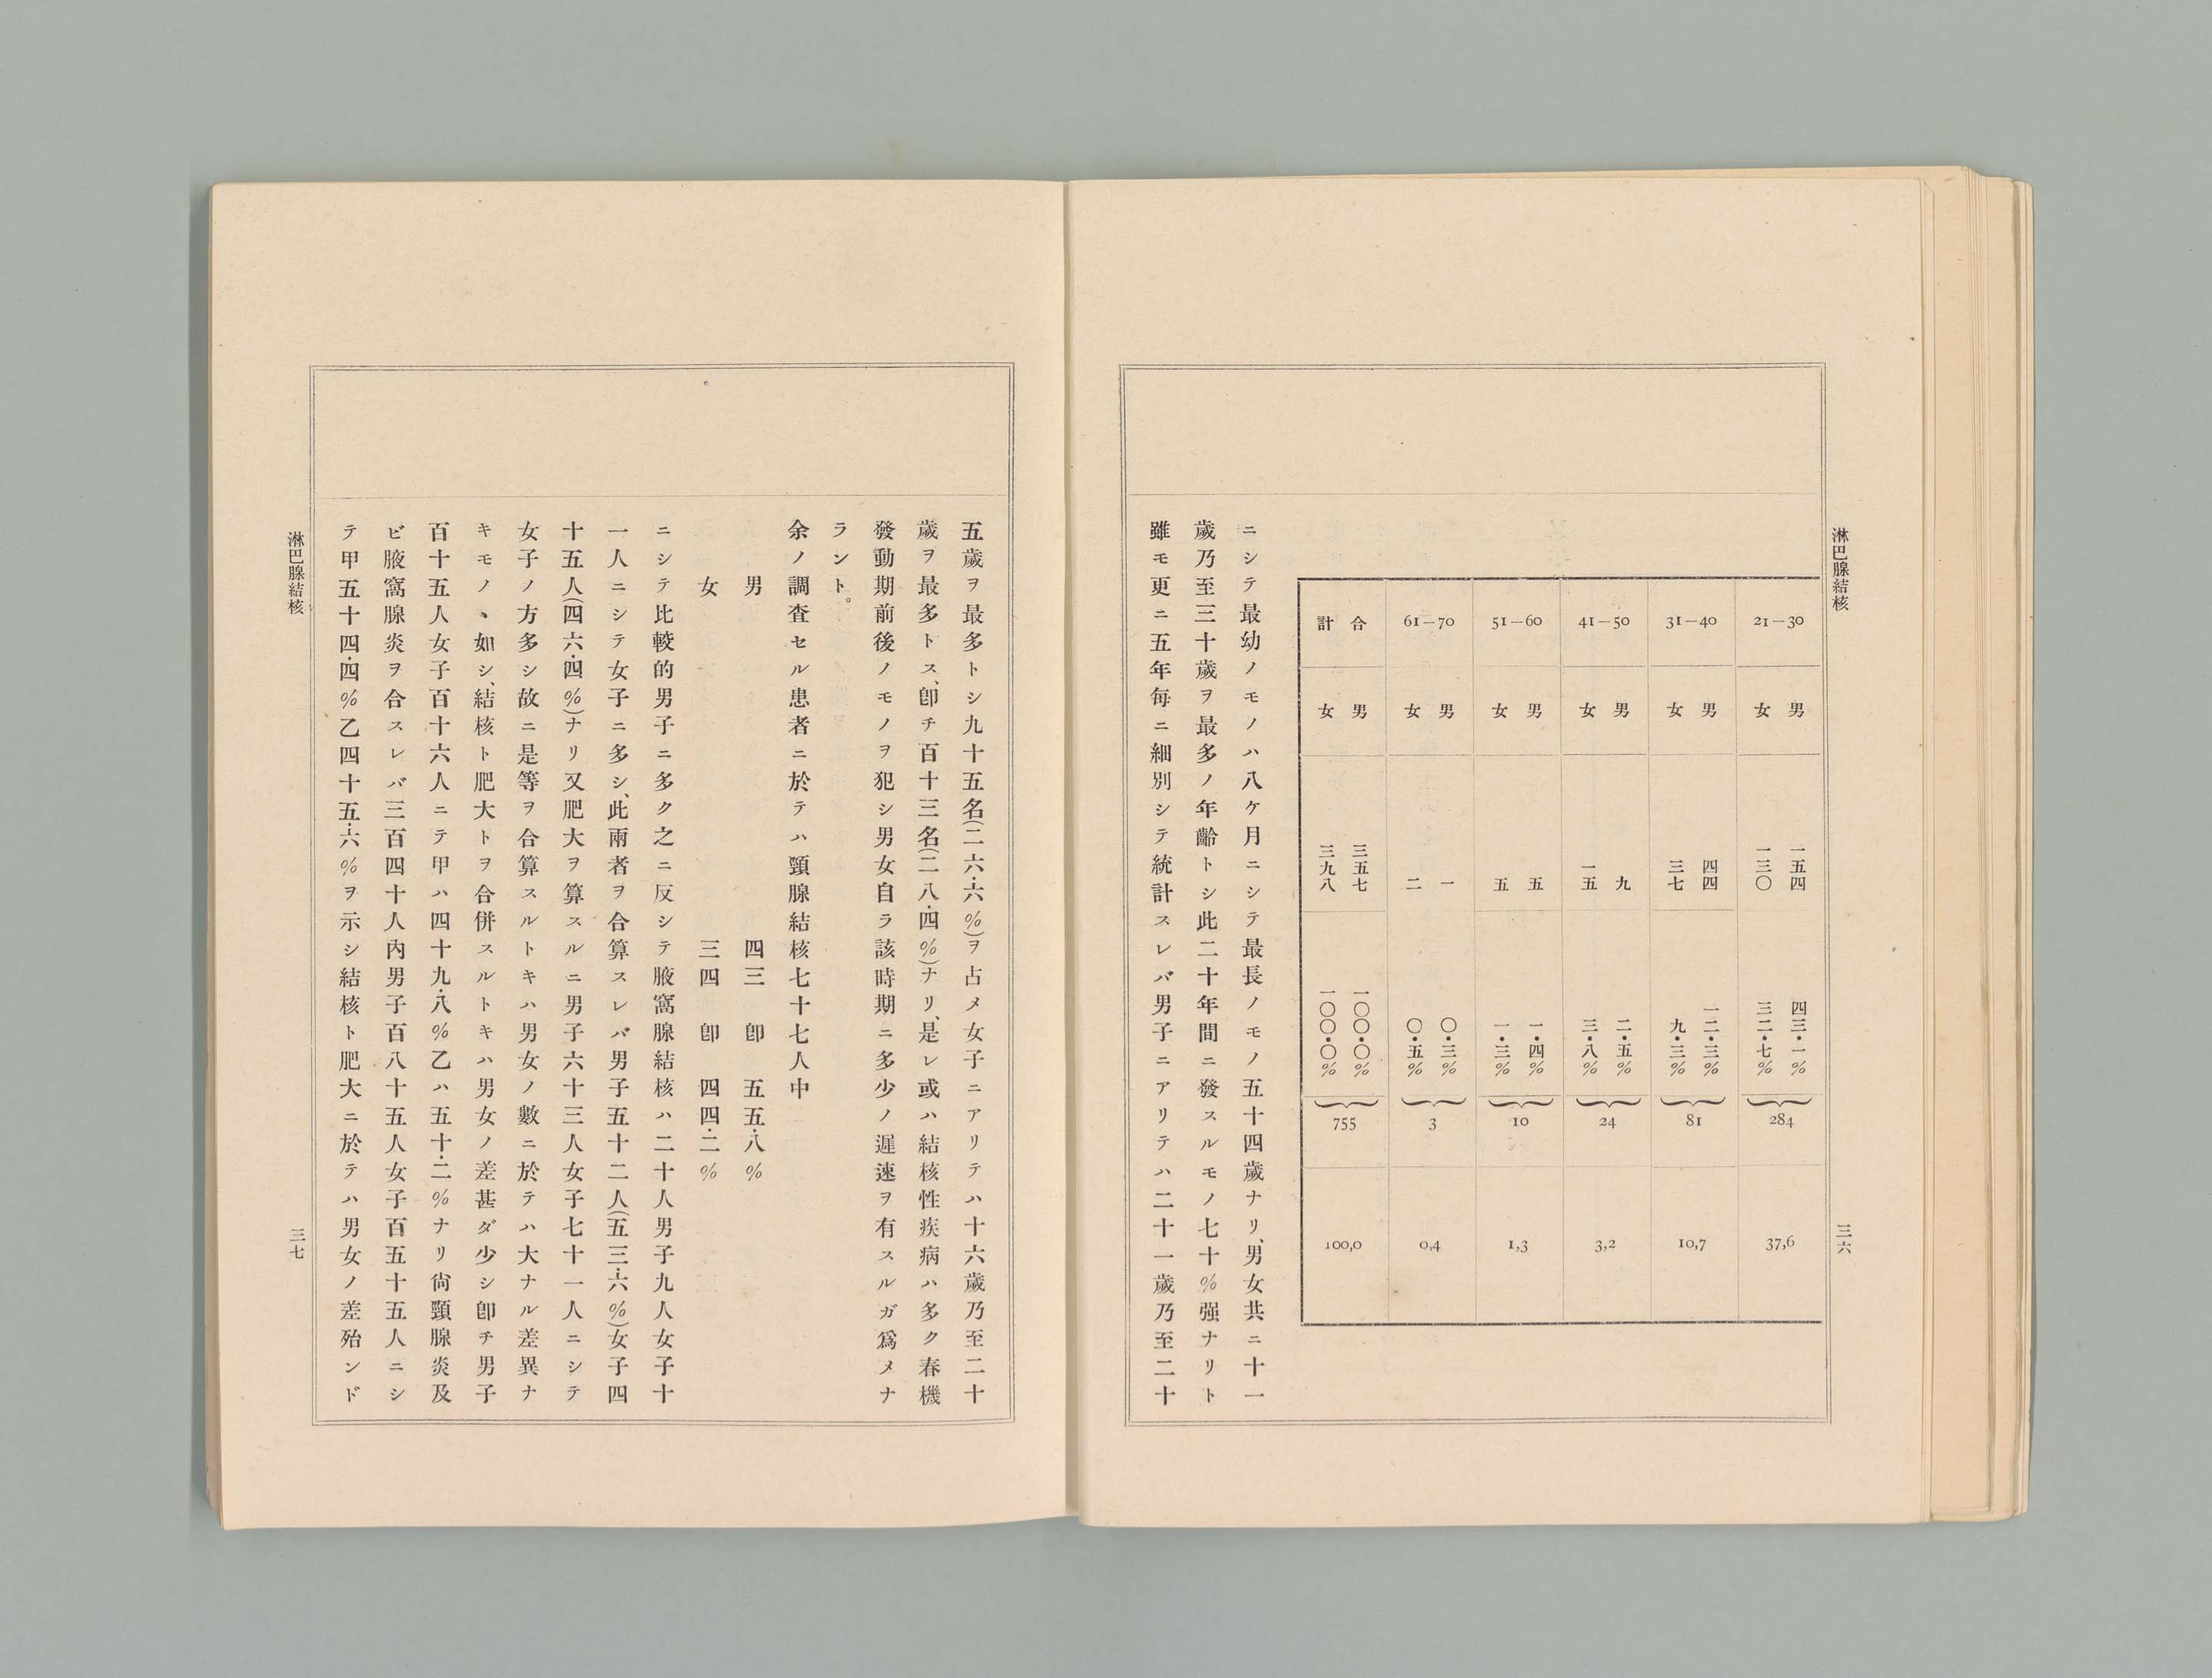 淋巴腺結核
三六
21—30
男
女
一五四
一三〇
四三・一%
三二・七%
284
37,6
31—40
男
女
四四
三七
一二・三%
九・三%
81
10,7
41—50
男
女
九
一五
二・五%
三・八%
24
3,2
51—60
男
女
五
五
一・四%
一・三%
10
1,3
61—70
男
女
一
二
〇・三%
〇・五%
3
0,4
合計
男
女
三五七
三九八
一〇〇・〇%
一〇〇・〇%
755
100,0
ニシテ最幼ノモノハ八ケ月ニシテ最長ノモノ五十四歲ナリ、男女共ニ十一
歲乃至三十歲ヲ最多ノ年齡トシ此二十年間ニ發スルモノ七十%强ナリト
雖モ更ニ五年每ニ細別シテ統計スレバ男子ニアリテハ二十一歲乃至二十
五歲ヲ最多トシ九十五名(二六・六%)ヲ占メ女子ニアリテハ十六歲乃至二十
歲ヲ最多トス、卽チ百十三名(二八・四%)ナリ、是レ或ハ結核性疾病ハ多ク春機
發動期前後ノモノヲ犯シ男女自ラ該時期ニ多少ノ遲速ヲ有スルガ爲メナ
ラント。
余ノ調査セル患者ニ於テハ頸腺結核七十七人中
男 四三 卽 五五・八%
女 三四 卽 四四・二%
ニシテ比較的男子ニ多ク之ニ反シテ腋窩腺結核ハ二十人男子九人女子十
一人ニシテ女子ニ多シ、此兩者ヲ合算スレバ男子五十二人(五三・六%)女子四
十五人(四六・四%)ナリ又肥大ヲ算スルニ男子六十三人女子七十一人ニシテ
女子ノ方多シ故ニ是等ヲ合算スルトキハ男女ノ數ニ於テハ大ナル差異ナ
キモノヽ如シ、結核ト肥大トヲ合併スルトキハ男女ノ差甚ダ少シ卽チ男子
百十五人女子百十六人ニテ甲ハ四十九・八%乙ハ五十・二%ナリ尙頸腺炎及
ビ腋窩腺炎ヲ合スレバ三百四十人內男子百八十五人女子百五十五人ニシ
テ甲五十四・四%乙四十五・六%ヲ示シ結核ト肥大ニ於テハ男女ノ差殆ンド
淋巴腺結核
三七